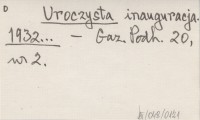 Uroczysta inauguracja.
1932... – Gaz. Podh. 20,
nr 2.